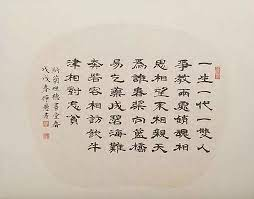 一生一代一雙人
爭教兩處銷魂相
思相望不相親天
為誰春漿向藍橋
易乞藥成碧海難
奔若容相訪飲牛
津相對忘貧
納蘭性德畫堂春
戊戌春書